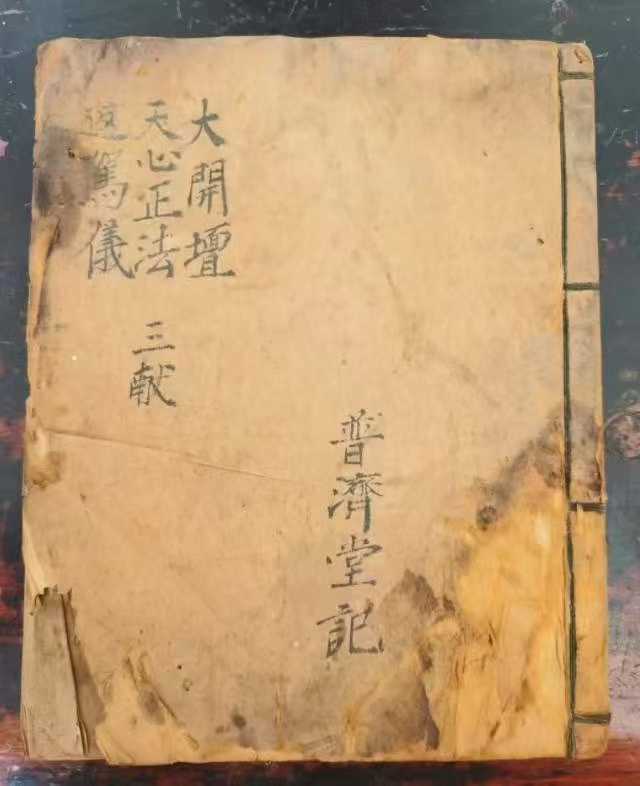 大開壇
天心正法 三献
返駕儀
普濟堂記